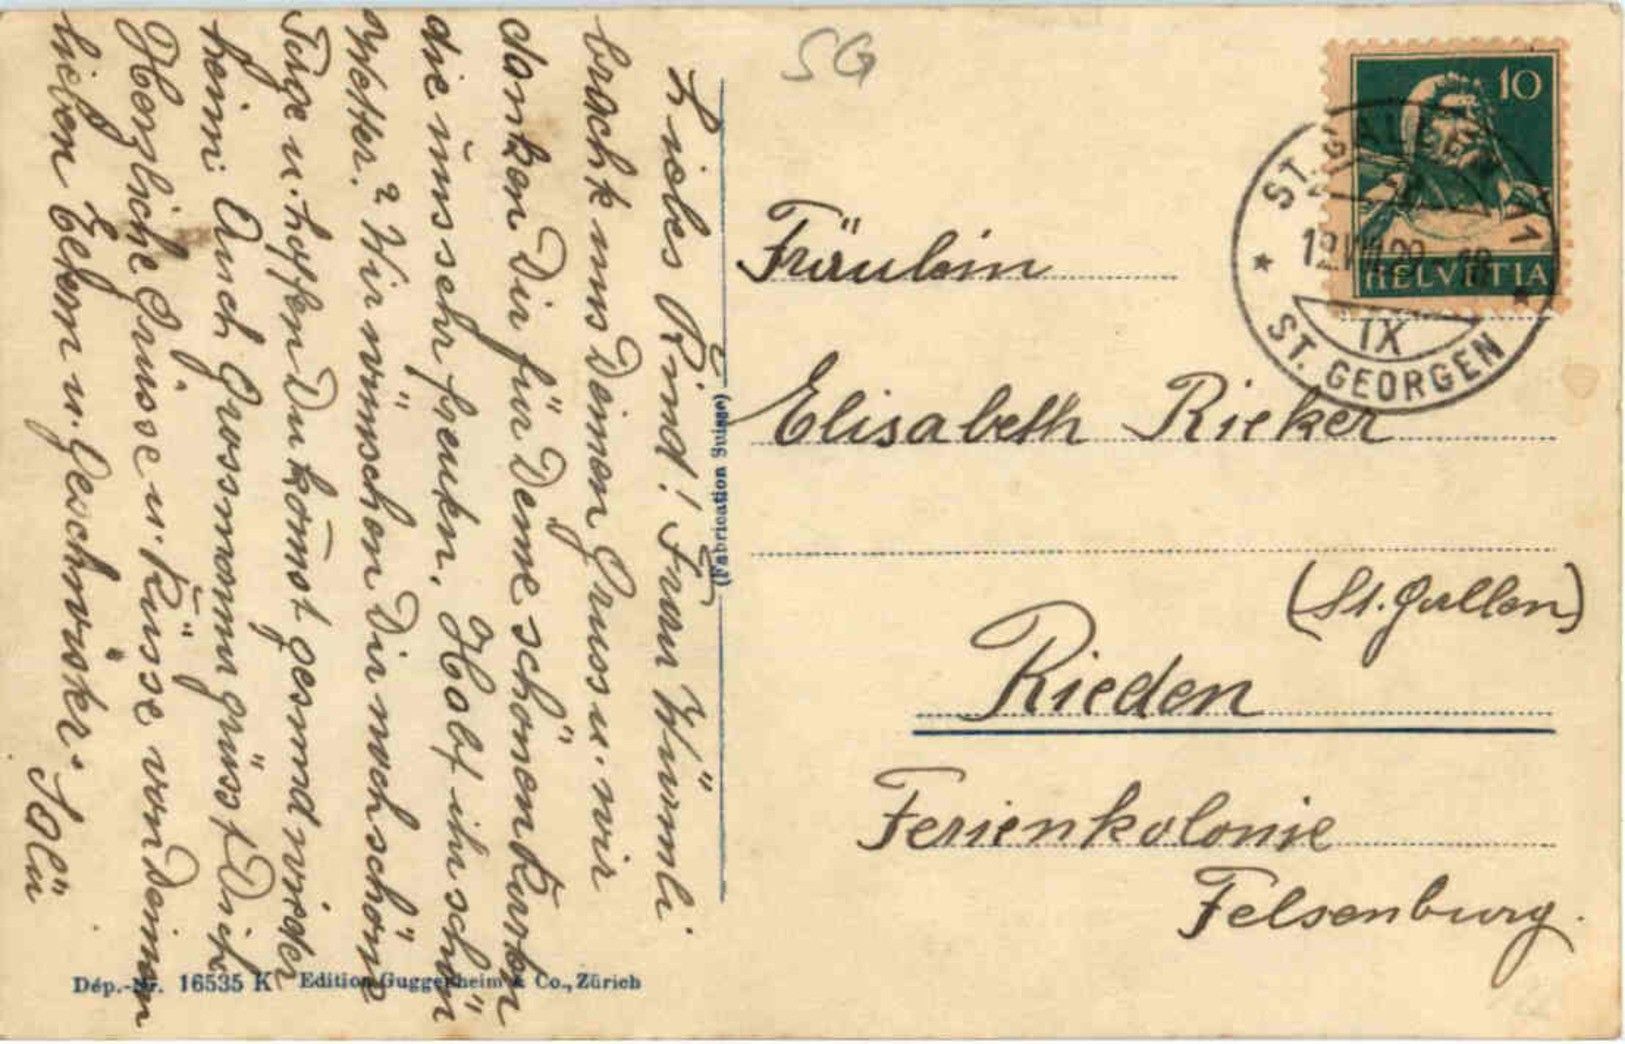 Liebes Kind! Frau Würmli
bracht uns Deinen Gruss u. wir
danken Dir für Deine schönen Karten
die uns sehr freuten. Habt ihr schön
Wetter? Wir wünschen Dir noch schöne
Tage u. hoffen Du kom̄st gesund wieder
heim. Auch Grossmama grüsst Dich.
Herzliche Grüsse u. Küsse von Deinen
lieben Eltern u. Geschwister.
SG
10
HELVETIA
ST. GALLEN 11
12.VIII.29
IX
ST. GEORGEN
Fräulein
Elisabeth Rieker
(St. Gallen)
Rieden
Ferienkolonie
Felsenburg.
(Fabrication Suisse)
Dép.-Nr. 16535 K Edition Guggenheim & Co., Zürich